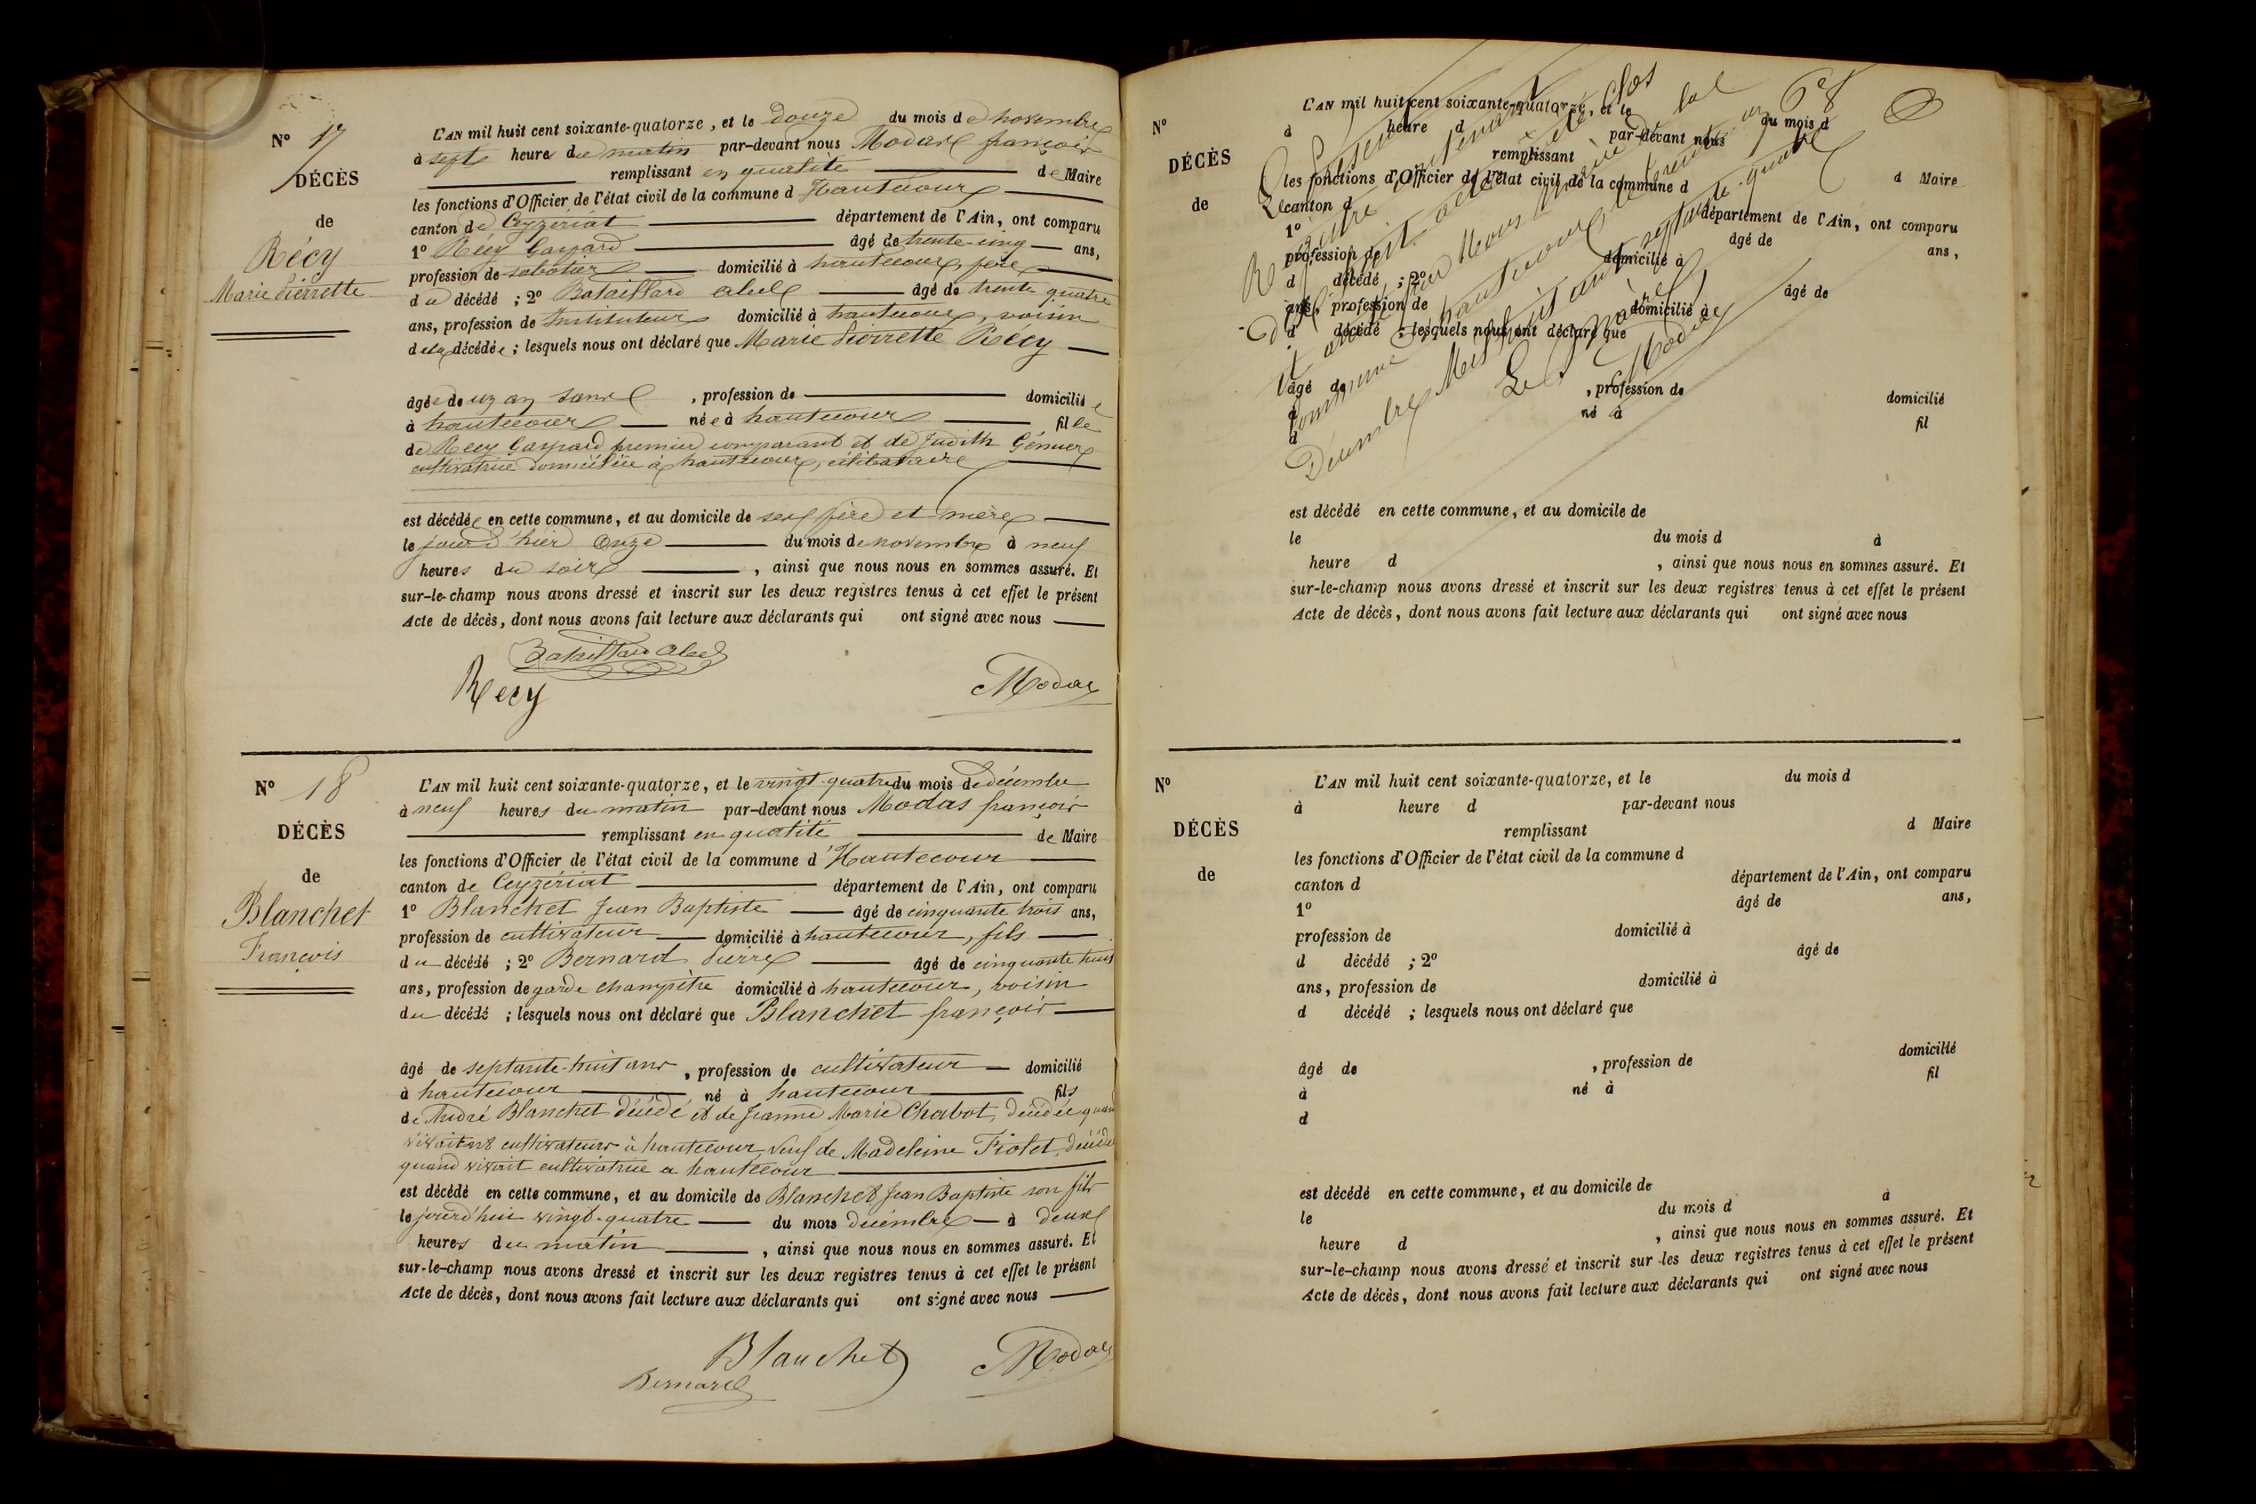 N° 17
DÉCÈS
de
Récy
Marie Pierrette
L'AN mil huit cent soixante-quatorze, et le douze du mois de novembre
à sept heures du matin par-devant nous Modas françois
remplissant en qualité de Maire
les fonctions d'Officier de l'état civil de la commune d'Hautecour
canton de Ceyzériat département de l'Ain, ont comparu
1° Récy Gaspard âgé de trente-cinq ans,
profession de sabotier domicilié à hautecour, père
du décédé ; 2° Bataillard abel âgé de trente quatre
ans, profession de Instituteur domicilié à hautecour, voisin
de la décédée ; lesquels nous ont déclaré que Marie Pierrette Récy
âgée de un an , profession de domicilié
à hautecour née à hautecour fille
de Récy Gaspard premier comparant et de Judith
cultivatrice domiciliée à hautecour, célibataire
est décédée en cette commune, et au domicile de ses père et mère
le jour d'hier onze du mois de novembre à neuf
heures du soir , ainsi que nous nous en sommes assuré. Et
sur-le-champ nous avons dressé et inscrit sur les deux registres tenus à cet effet le présent
Acte de décès, dont nous avons fait lecture aux déclarants qui ont signé avec nous
Bataillard abel
Recy Modas
N° 18
DÉCÈS
de
Blanchet
François
L'AN mil huit cent soixante-quatorze, et le vingt-quatre du mois de décembre
à neuf heures du matin par-devant nous Modas françois
remplissant en qualité de Maire
les fonctions d'Officier de l'état civil de la commune d'Hautecour
canton de Ceyzériat département de l'Ain, ont comparu
1° Blanchet Jean Baptiste âgé de cinquante trois ans,
profession de cultivateur domicilié à hautecour, fils
du décédé ; 2° Bernard Pierre âgé de cinquante huit
ans, profession de garde champêtre domicilié à hautecour, voisin
du décédé ; lesquels nous ont déclaré que Blanchet françois
âgé de septante-huit ans , profession de cultivateur domicilié
à hautecour né à hautecour fils
de André Blanchet décédé et de Jeanne Marie Chabot, décédée quand
vivaient cultivateurs à hautecour veuf de Madeleine Fiolet, décédée
quand vivait cultivatrice a hautecour
est décédé en cette commune, et au domicile de Blanchet Jean Baptiste son fils
le jourd'hui vingt-quatre du mois décembre à deux
heures du matin , ainsi que nous nous en sommes assuré. Et
sur-le-champ nous avons dressé et inscrit sur les deux registres tenus à cet effet le présent
Acte de décès, dont nous avons fait lecture aux déclarants qui ont signé avec nous
Blanchet Modas
Bernard
N°
DÉCÈS
de
L'AN mil huit cent soixante-quatorze, et le du mois d
à heure d par-devant nous
remplissant d Maire
les fonctions d'Officier de l'état civil de la commune d
canton d département de l'Ain, ont comparu
1° âgé de ans,
profession de domicilié à
d décédé ; 2° âgé de
ans, profession de domicilié à
d décédé ; lesquels nous ont déclaré que
âgé de , profession de domicilié
à né à fil
d
Le présent
Registre
été clos
et arrêté par Nous maire de la
commune d'hautecour le trente un
Décembre Mil huit cent septante-quatre
Le Maire,
Modas
est décédé en cette commune, et au domicile de
le du mois d à
heure d , ainsi que nous nous en sommes assuré. Et
sur-le-champ nous avons dressé et inscrit sur les deux registres tenus à cet effet le présent
Acte de décès, dont nous avons fait lecture aux déclarants qui ont signé avec nous
N°
DÉCÈS
de
L'AN mil huit cent soixante-quatorze, et le du mois d
à heure d par-devant nous
remplissant d Maire
les fonctions d'Officier de l'état civil de la commune d
canton d département de l'Ain, ont comparu
1° âgé de ans,
profession de domicilié à
d décédé ; 2° âgé de
ans, profession de domicilié à
d décédé ; lesquels nous ont déclaré que
âgé de , profession de domicilié
à né à fil
d
est décédé en cette commune, et au domicile de
le du mois d à
heure d , ainsi que nous nous en sommes assuré. Et
sur-le-champ nous avons dressé et inscrit sur les deux registres tenus à cet effet le présent
Acte de décès, dont nous avons fait lecture aux déclarants qui ont signé avec nous